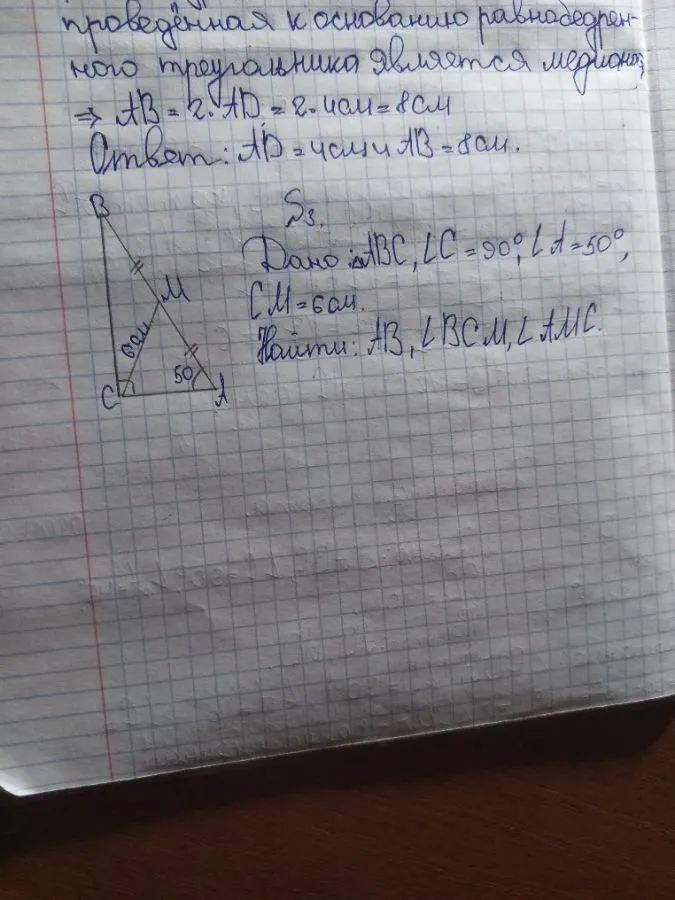 проведённая к основанию равнобедрен-
ного треугольника является медианой
⇒ AB = 2·AD = 2·4см = 8см
Ответ: AD = 4см и AB = 8см.
S3.
Дано: △ABC, ∠C = 90°, ∠A = 50°,
CM = 6см.
Найти: AB, ∠BCM, ∠AMC.
B
M
6см
50
C
A